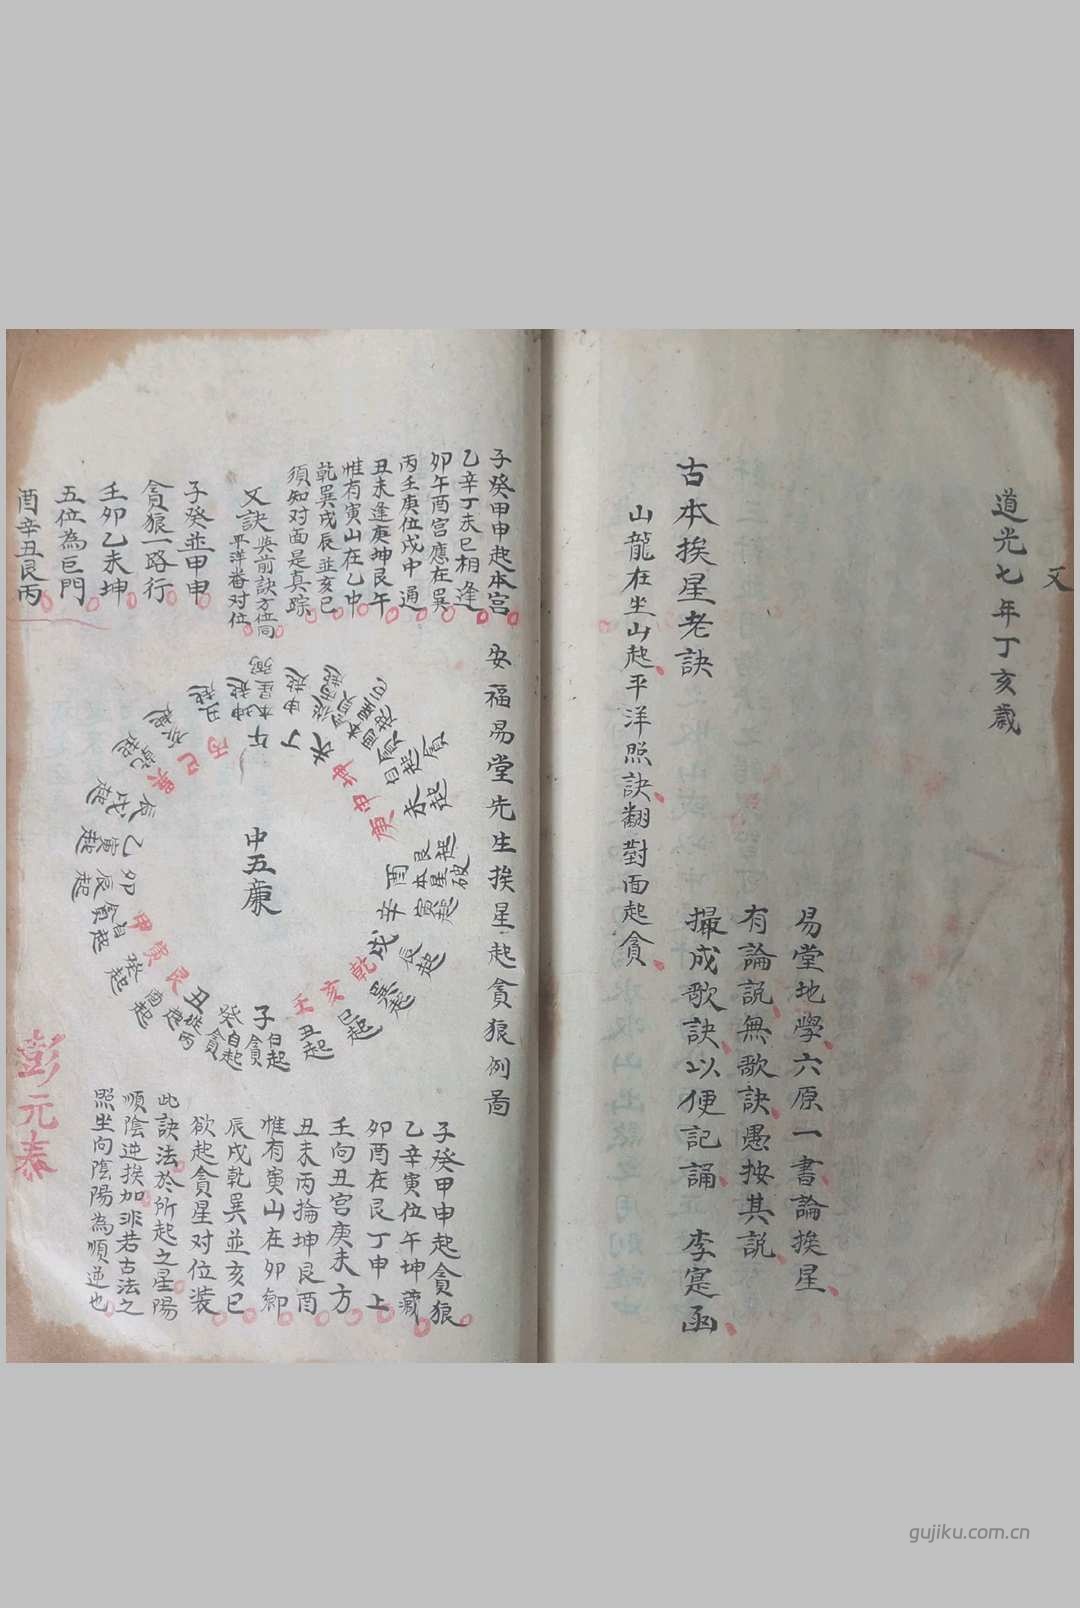 又
道光七年丁亥歳
易堂地學六原一書論挨星
有論説無歌訣愚按其説
撮成歌訣以便記誦　李寔函
古本挨星老訣
山龍在坐山起平洋照訣翻對面起貪
子癸甲申起本宮
乙辛丁未巳相逢
卯午酉宮應在巽
丙壬庚位戌中通
丑未逢庚坤艮午
惟有寅山在乙中
乾巽戌辰並亥巳
須知对面是真踪
又訣
平洋眷对位
子癸並甲申
貪狼一路行
壬卯乙未坤
五位為巨門
酉辛丑艮丙
安福易堂先生挨星起貪狼例啚
中五廉
子
癸
丑
艮
寅
甲
卯
乙
辰
巽
巳
丙
午
丁
未
坤
申
庚
酉
辛
戌
乾
亥
壬
子癸甲申起貪狼
乙辛寅位午坤藏
卯酉在艮丁申上
壬向丑宮庚未方
丑未丙掄坤艮酉
惟有寅山在卯鄉
辰戌乾巽並亥巳
欲起貪星对位装
此訣法於所起之星陽
順陰逆挨加非若古法之
照坐向陰陽為順逆也
彭元泰
gujiku.com.cn